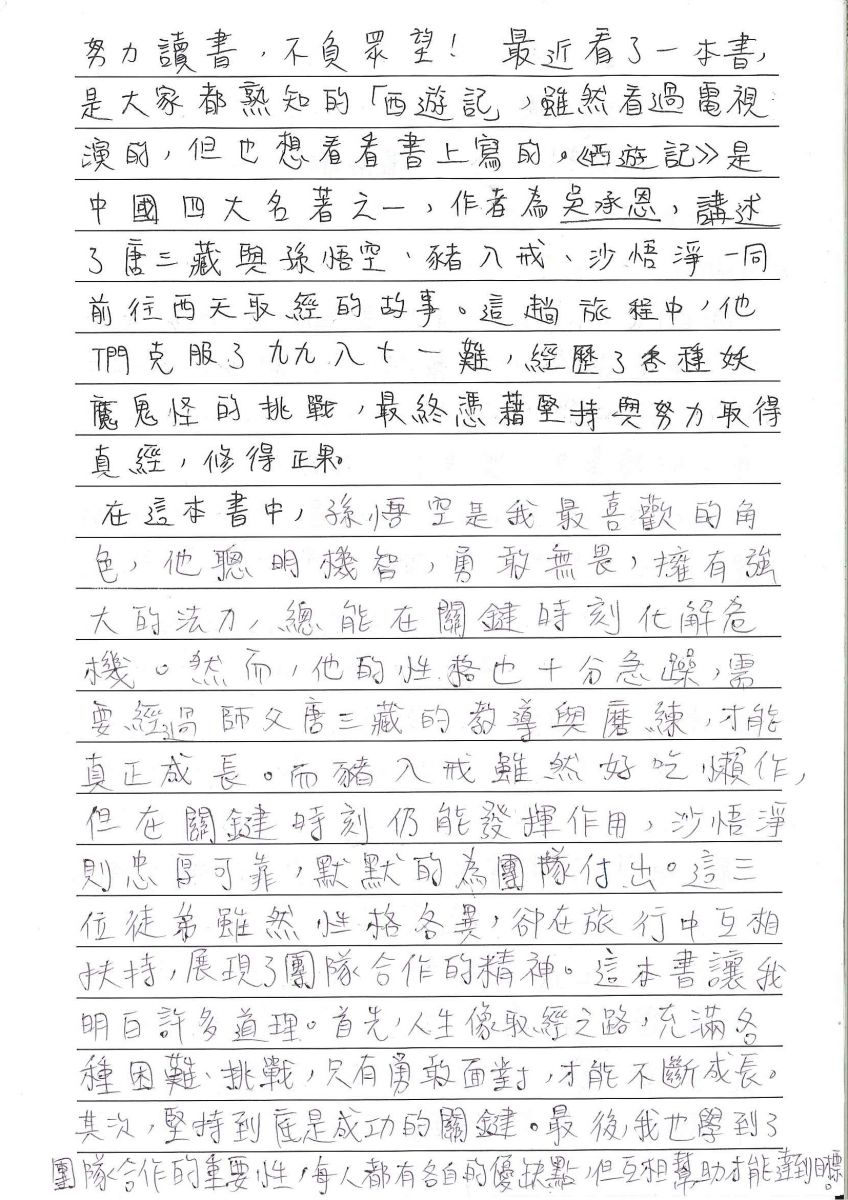 努力讀書，不負眾望！ 最近看了一本書，
是大家都熟知的「西遊記，雖然看過電視
演的，但也想看看書上寫的。《西遊記》是
中國四大名著之一，作者為吳承恩，講述
了唐三藏與孫悟空、豬八戒、沙悟淨一同
前往西天取經的故事。這趟旅程中，他
們克服了九九八十一難，經歷了各種妖
魔鬼怪的挑戰，最終憑藉堅持與努力取得
真經，修得正果。
在這本書中，孫悟空是我最喜歡的角
色，他聰明機智，勇敢無畏，擁有強
大的法力，總能在關鍵時刻化解危
機。然而，他的性格也十分急躁，需
要經過師父唐三藏的教導與磨練，才能
真正成長。而豬八戒雖然好吃懶作，
但在關鍵時刻仍能發揮作用，沙悟淨
則忠厚可靠，默默的為團隊付出。這三
位徒弟雖然性格各異，卻在旅行中互相
扶持，展現了團隊合作的精神。這本書讓我
明白許多道理。首先，人生像取經之路，充滿各
種困難、挑戰，只有勇敢面對，才能不斷成長。
其次，堅持到底是成功的關鍵。最後，我也學到了
團隊合作的重要性，每人都有各自的優缺點，但互相幫助才能達到目標。